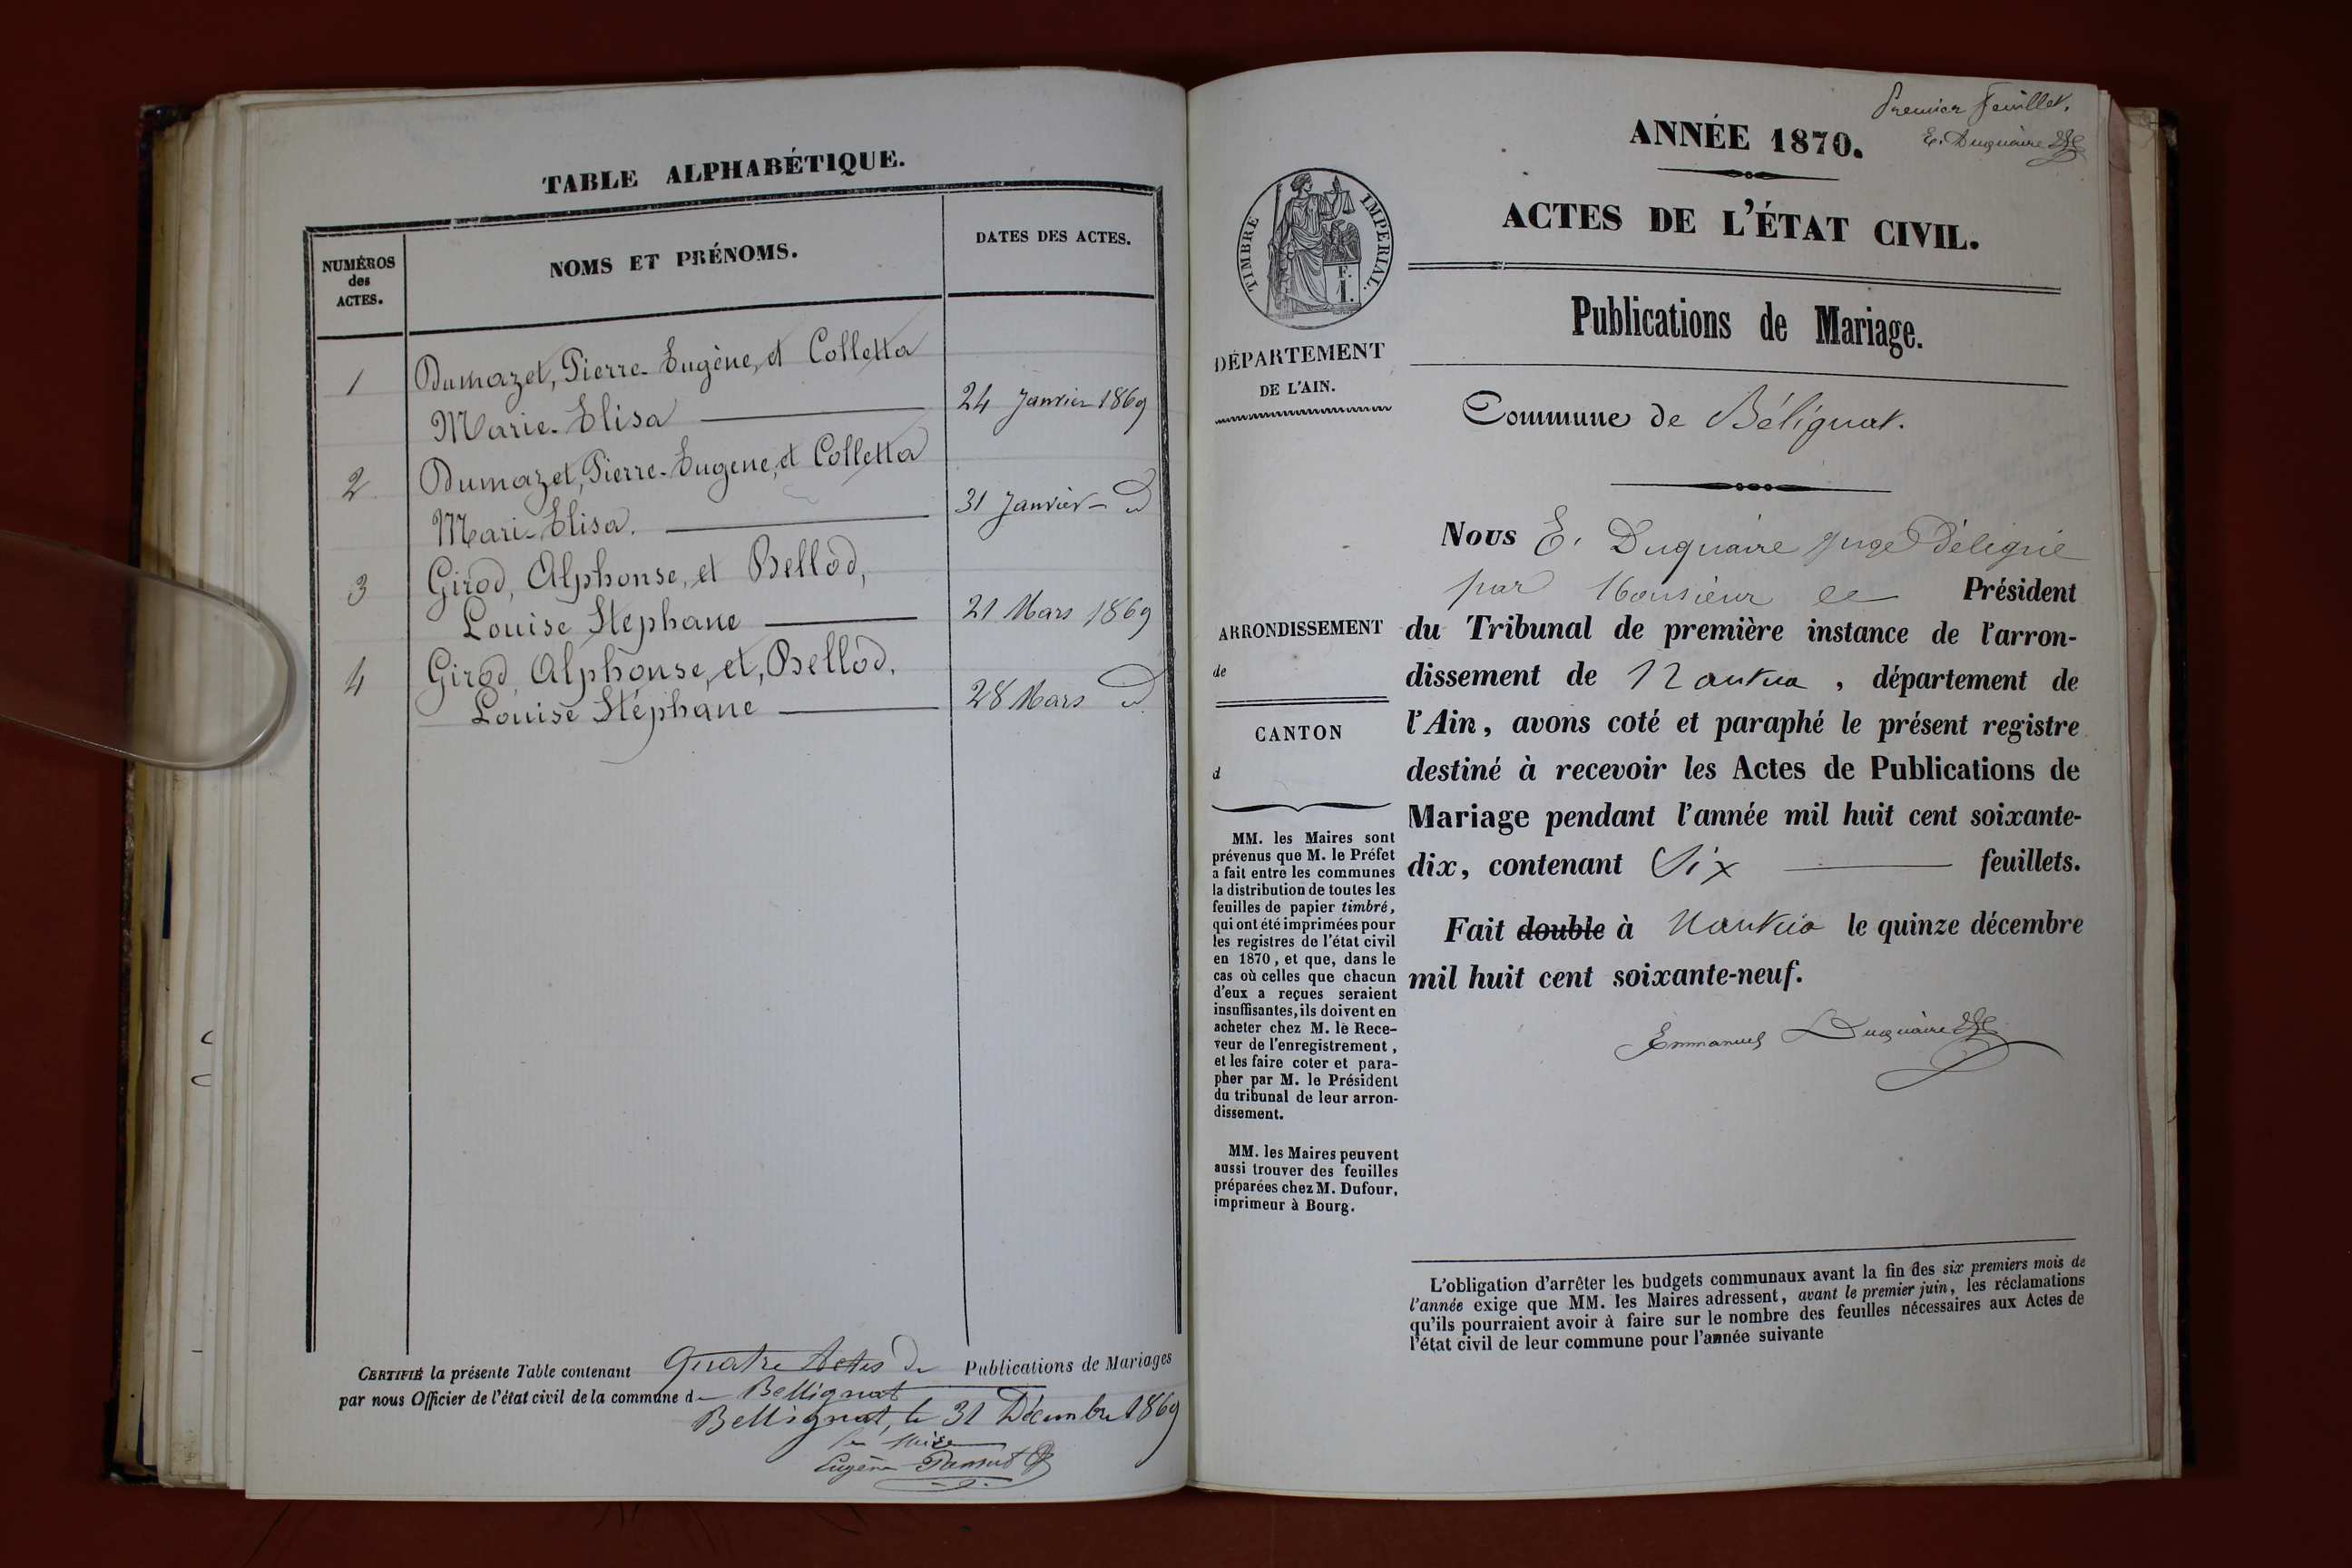 TABLE ALPHABÉTIQUE.
NUMÉROS
des
ACTES.
NOMS ET PRÉNOMS.
DATES DES ACTES.
1 Dumazet, Pierre-Eugène, et Colletta
Marie-Elisa 24 Janvier 1869
2 Dumazet, Pierre-Eugene, et Colletta
Mari-Elisa. 31 Janvier d
3 Girod, Alphonse, et Bellod,
Louise Stéphane 21 Mars 1869
4 Girod, Alphonse, et, Bellod.
Louise Stéphane 28 Mars d
CERTIFIÉ la présente Table contenant Quatre Actes de Publications de Mariages
par nous Officier de l'état civil de la commune de Bellignat
Bellignat, le 31 Décembre 1869
Le Maire
Eugène
Premier feuillet.
E. Duquaire
ANNÉE 1870.
ACTES DE L'ÉTAT CIVIL.
TIMBRE IMPERIAL.
F.
1.
DÉPARTEMENT
DE L'AIN.
Publications de Mariage.
Commune de Bélignat.
Nous E. Duquaire juge Délégué
par Monsieur le Président
du Tribunal de première instance de l'arron-
dissement de Nantua, département de
l'Ain, avons coté et paraphé le présent registre
destiné à recevoir les Actes de Publications de
Mariage pendant l'année mil huit cent soixante-
dix, contenant Six feuillets.
Fait double à Nantua le quinze décembre
mil huit cent soixante-neuf.
Emmanuel Duquaire
ARRONDISSEMENT
de
CANTON
d
MM. les Maires sont
prévenus que M. le Préfet
a fait entre les communes
la distribution de toutes les
feuilles de papier timbré,
qui ont été imprimées pour
les registres de l'état civil
en 1870, et que, dans le
cas où celles que chacun
d'eux a reçues seraient
insuffisantes, ils doivent en
acheter chez M. le Rece-
veur de l'enregistrement,
et les faire coter et para-
pher par M. le Président
du tribunal de leur arron-
dissement.
MM. les Maires peuvent
aussi trouver des feuilles
préparées chez M. Dufour,
imprimeur à Bourg.
L'obligation d'arrêter les budgets communaux avant la fin des six premiers mois de
l'année exige que MM. les Maires adressent, avant le premier juin, les réclamations
qu'ils pourraient avoir à faire sur le nombre des feuilles nécessaires aux Actes de
l'état civil de leur commune pour l'année suivante